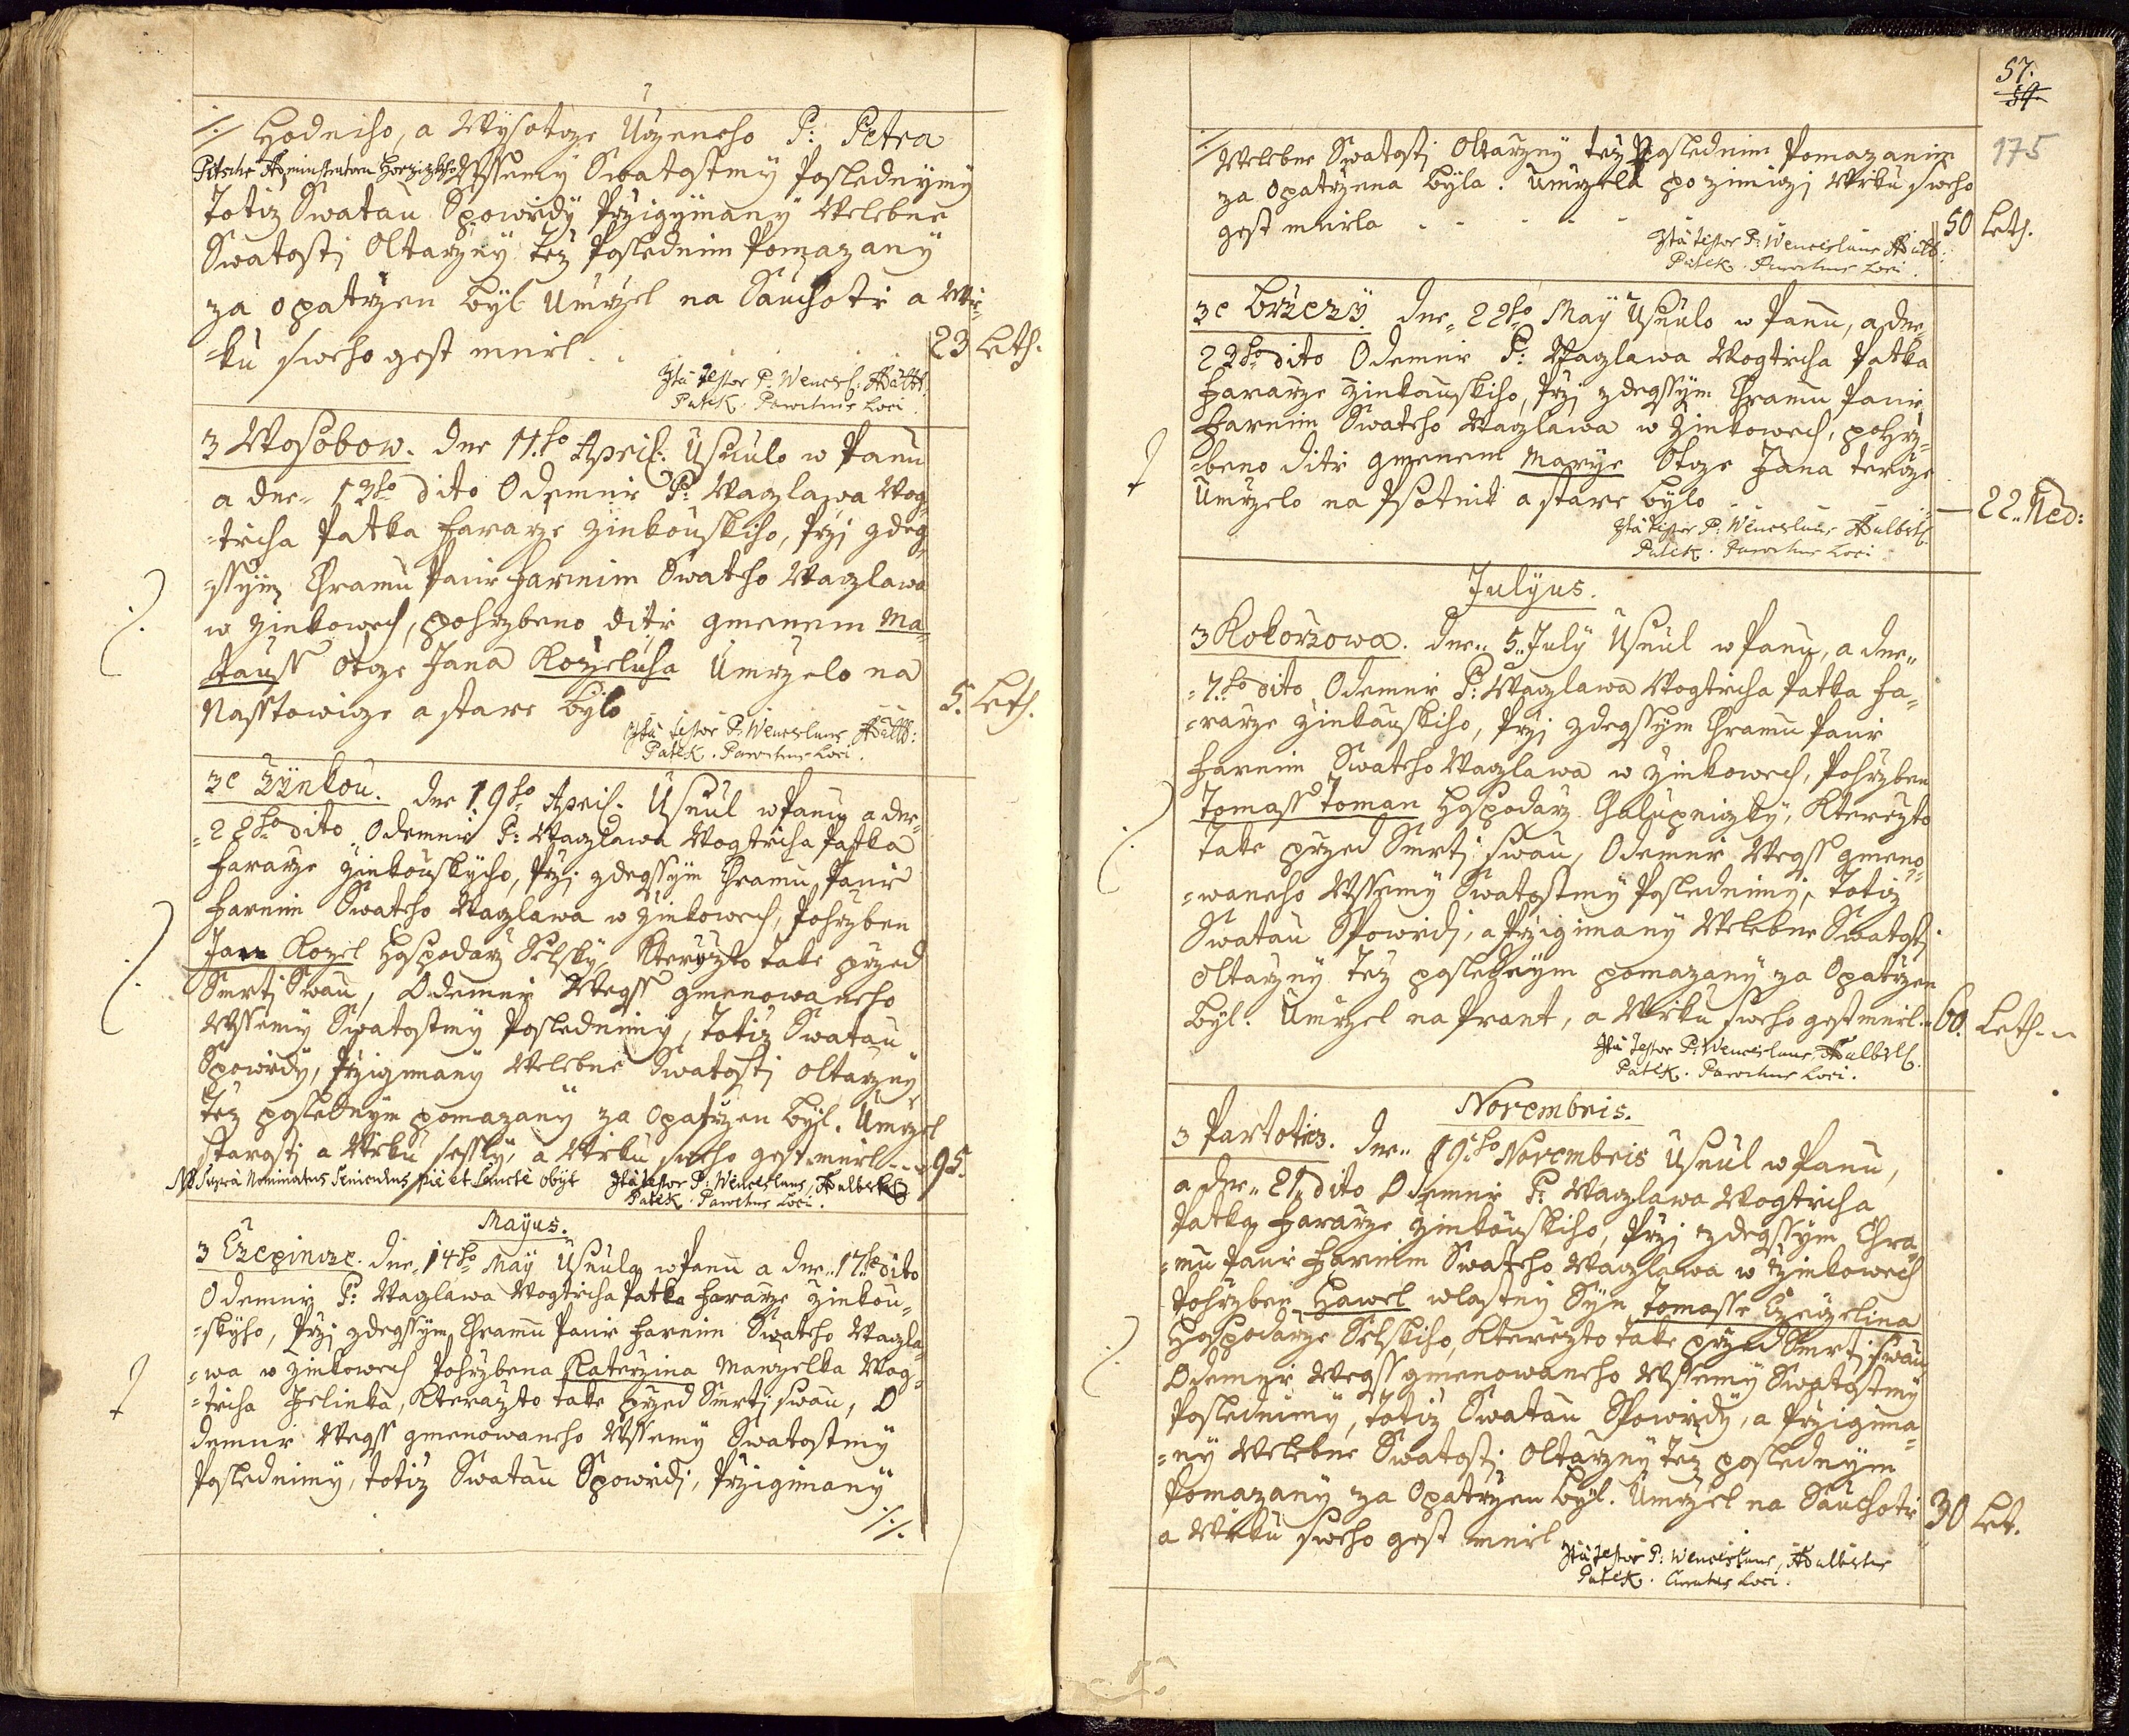 ./. Hodneho, a Wysotze Učzeneho P: Petra
Pitsche Administratora Horziczkho Wssemy Swatostmy Poslednymy
Totiz Swatau Spowědÿ Przigÿmanÿ Welebne
Swatosti Oltarznÿ Tez Poslednim Pomazanÿ
za opatrzen Bÿl Umrzel na Sauchotě a Wě-
-ku sweho gest mněl . . 23 Leth.
Ita Testor P: Wencesl: Adalb:
Patek. Parochus Loci.
3 Wosobow. dne 11.ho April: Usnulo w Panu
a dne 13ho dito Odemně P: Waczlawa Wog-
-techa Patka Fararze Zinkouskiho, Przi Zdeg-
-ssÿm Chramu Paně Farnim Swateho Waczlawa
w Zinkowech, pohrzbeno ditě gmenem Ma-
tauss Otcze Jana Kozeluha Umrzelo na
Nasstowicze a stare Bÿlo 5. Leth.
Ita Testor P: Wenceslaus Adalb:
Patek. Parochus Loci.
Ze Zÿnkou. dne 19ho April. Usnul w Panu a dne
=22ho dito Odemně P: Waczlawa Wogtěcha Patka
Fararze Zinkouskÿho, Przi Zdegssÿm Chramu Paně
Farnim Swateho Waczlawa w Zinkowech, Pohrzben
Jan Kozel Hospodarz Selskÿ, Kterÿzto take przed
Smrti Swau, Odemně Wegss gmenowaneho
Wssemÿ Swatostmÿ Poslednimÿ, Totiz Swatau
Spowědÿ, Przigimanÿ Welebne Swatosti oltarznÿ
Tez poslednÿm pomazanÿ za opatrzen Bÿl. Umrzel
starosti a Wěku sesslÿ, a Wěku sweho gest měl - - - 95.
NB Supra Nominatus Seniculus pie et Sancte obÿt Ita Testor P: Wenceslaus Adalbert
Patek. Parochus Loci.
Maÿus.
3 Czepincze. dne 14ho Maÿ Usnula w Panu a dne 17ho dito
Odemně P: Waczlawa Wogtěcha Patka Fararze Zinkou-
-skÿho, Przi Zdegssÿm Chramu Paně Farnim Swateho Waczla-
-wa w Zinkowech Pohrzbena Katerzina Manzelka Wog-
-těcha Jelinka, Kterazto take przed Smrti swau, O
demně Wegss gmenowaneho Wssemÿ Swatostmÿ
Poslednimÿ, totiz Swatau Spowědi, Przigimanÿ
./.
57.
175
./. Welebne Swatosti Oltarznÿ tez Poslednim Pomazanim
za opatrzena Bÿla. Umrzela po zimiczi Wěku sweho
gest měla - - - - - 50 Leth.
Ita Testor P: Wenceslaus Adalb:
Patek. Parochus Loci.
Ze Brzezÿ. dne 22ho Maÿ Usnulo w Panu, a dne
23ho dito Odemně P: Waczlawa Wogtěcha Patka
Fararze Zinkauskiho, Przi zdegssÿm Chramu Paně
Farnim Swateho Waczlawa w Zinkowech, pohrz-
-beno ditě gmenem Marÿe Otcze Jana
Umrzelo na Psotnik a stare bÿlo - - - 22. Ned:
Ita Testor P: Wenceslaus Adalbert.
Patek. Parochus Loci
Julÿus.
3 Kokorzowa. dne 5. Julÿ Usnul w Panu, a dne
=7.ho dito Odemně P: Waczlawa Wogtěcha Patka Fa-
-rarze Zinkauskiho, Przi Zdegssÿm Chramu Paně
Farnim Swateho Waczlawa w Zinkowech, Pohrzben
Tomass Toman Hospodarz Chalupniczkÿ, Kterÿzto
take przed Smrti swau, Odemně Wegss gmeno-
-waneho Wssemÿ Swatostmÿ Poslednimÿ, Totiz
Swatau Spowědi, a Przigimanÿ Welebne Swatosti
oltarznÿ Tez poslednÿm pomazanÿ za Opatrzen
Bÿl. Umrzel na Prant, a Wěku sweho gest měl. 60. Leth.
Ita Testor P: Wenceslaus Adalbert.
Patek. Parochus Loci.
Novembris.
3 Partoticz. dne 19.ho Novembris Usnul w Panu,
a dne 21. dito Odemně P: Waczlawa Wogtěcha
Patka Fararze Zinkouskiho, Przi zdegssÿm Chra-
-mu Paně Farnim Swateho Waczlawa w Zinkowech
Pohrzben Hawel wlastnÿ Sÿn Tomasse
Hospodarze Selskiho, Kterÿzto take przed Smrti swau
Odemně Wegss gmenowaneho Wssemÿ Swatostmÿ
Poslednimÿ, Totiz Swatau Spowědÿ, a Przigima-
-nÿ Welebne Swatosti Oltarznÿ Tez poslednÿm
Pomazanÿ za Opatrzen Bÿl. Umrzel na Sauchotě
a Wěku sweho gest měl 30 Let.
Ita Testor P: Wenceslaus Adalbertus
Patek. Curatus Loci.